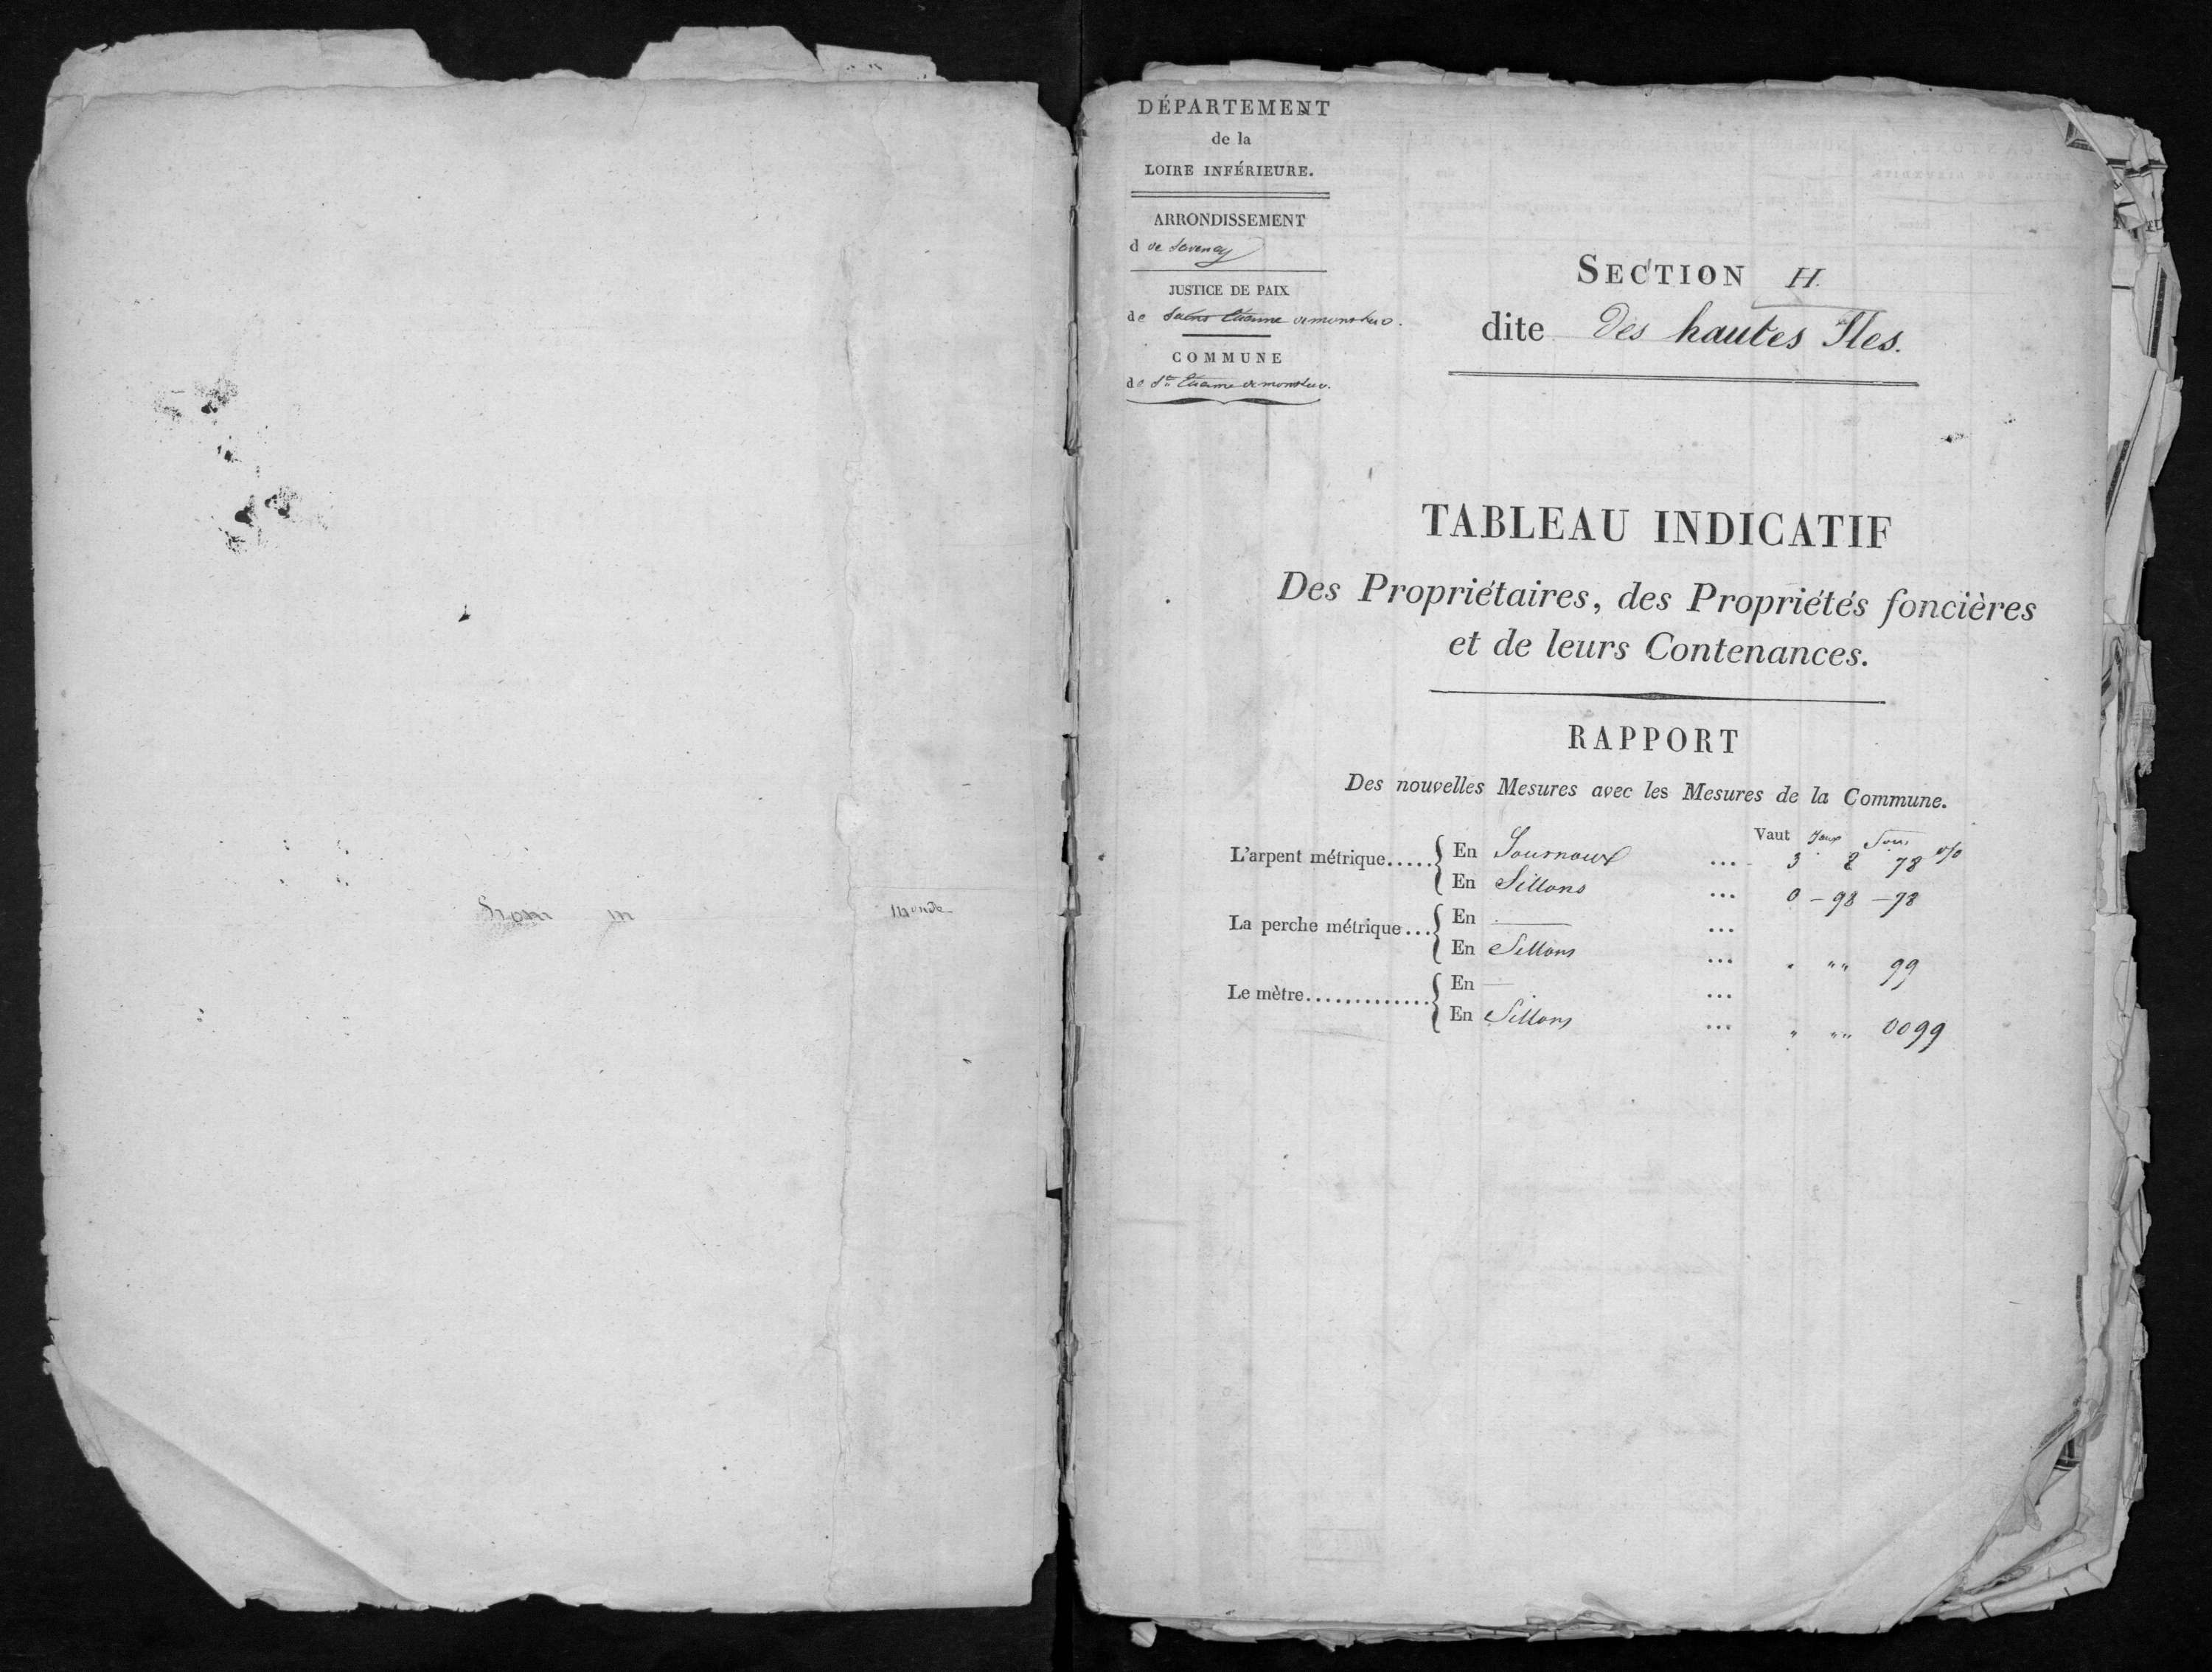 monde
DÉPARTEMENT
de la
LOIRE INFÉRIEURE.
ARRONDISSEMENT
d de Savenay
JUSTICE DE PAIX
de Saint Etienne de montluc.
COMMUNE
de St. Etienne de montluc.
SECTION H.
dite Des hautes Iles.
TABLEAU INDICATIF
Des Propriétaires, des Propriétés foncières
et de leurs Contenances.
RAPPORT
Des nouvelles Mesures avec les Mesures de la Commune.
Vaut
L'arpent métrique..... { En Journaux ... 3 8 78
En Sillons ... 0 - 98 - 78
La perche métrique... { En ——— ...
En Sillons ... " "" 99
Le mètre.............. { En — ...
En Sillons ... " "" 0099